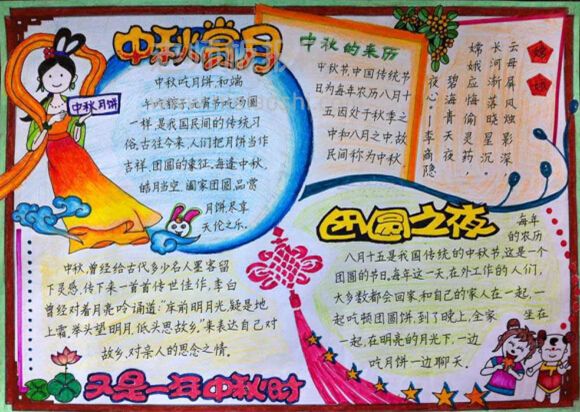 中秋赏月
中秋月饼
中秋吃月饼和端
午吃粽子元宵节吃汤圆
一样,是我国民间的传统习
俗,古往今来,人们把月饼当作
吉祥、团圆的象征,每逢中秋,
皓月当空,阖家团圆,品赏
月饼尽享
天伦之乐.
中秋的来历
中秋节,中国传统节
日为每年农历八月十
五因处于秋季之
中和八月之中,故
民间称为中秋
嫦娥
云母屏风烛影深,
长河渐落晓星沉。
嫦娥应悔偷灵药,
碧海青天夜
夜心。—李商隐
中秋,曾经给古代多少名人墨客留
下灵感,传下来一首首传世佳作,李白
曾经对着月亮吟诵道:"床前明月光,疑是地
上霜,举头望明月,低头思故乡."来表达自己对
故乡,对亲人的思念之情。
团圆之夜
每年
的农历
八月十五是我国传统的中秋节,这是一个
团圆的节日,每年这一天,在外工作的人们,
大多数都会回家,和自己的家人在一起,一
起吃顿团圆饼,到了晚上,全家坐在
一起,在明亮的月光下,一边
吃月饼一边聊天。
又是一年中秋时